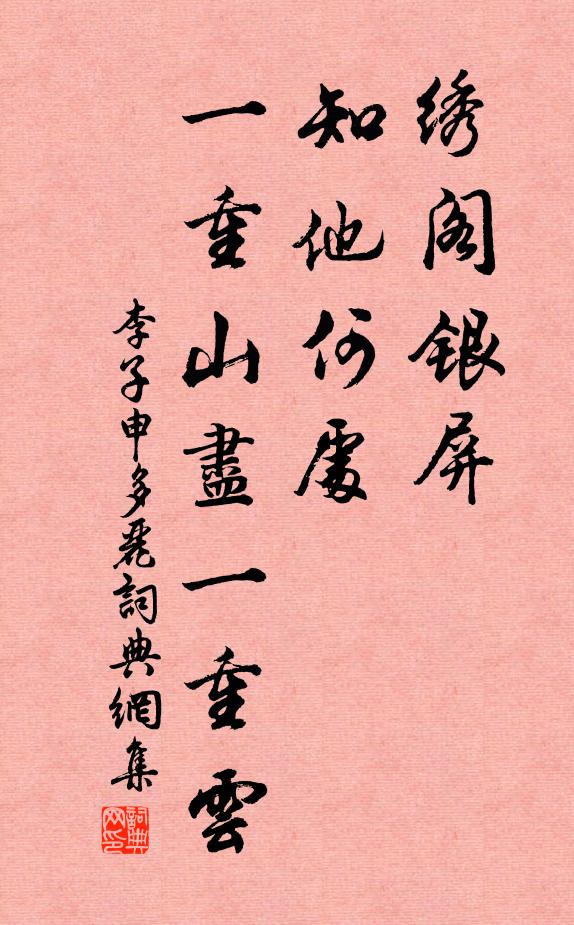 绣阁银屏
知他何處
一重山盡一重雲
李子申多麗詞典網集
詞典网印